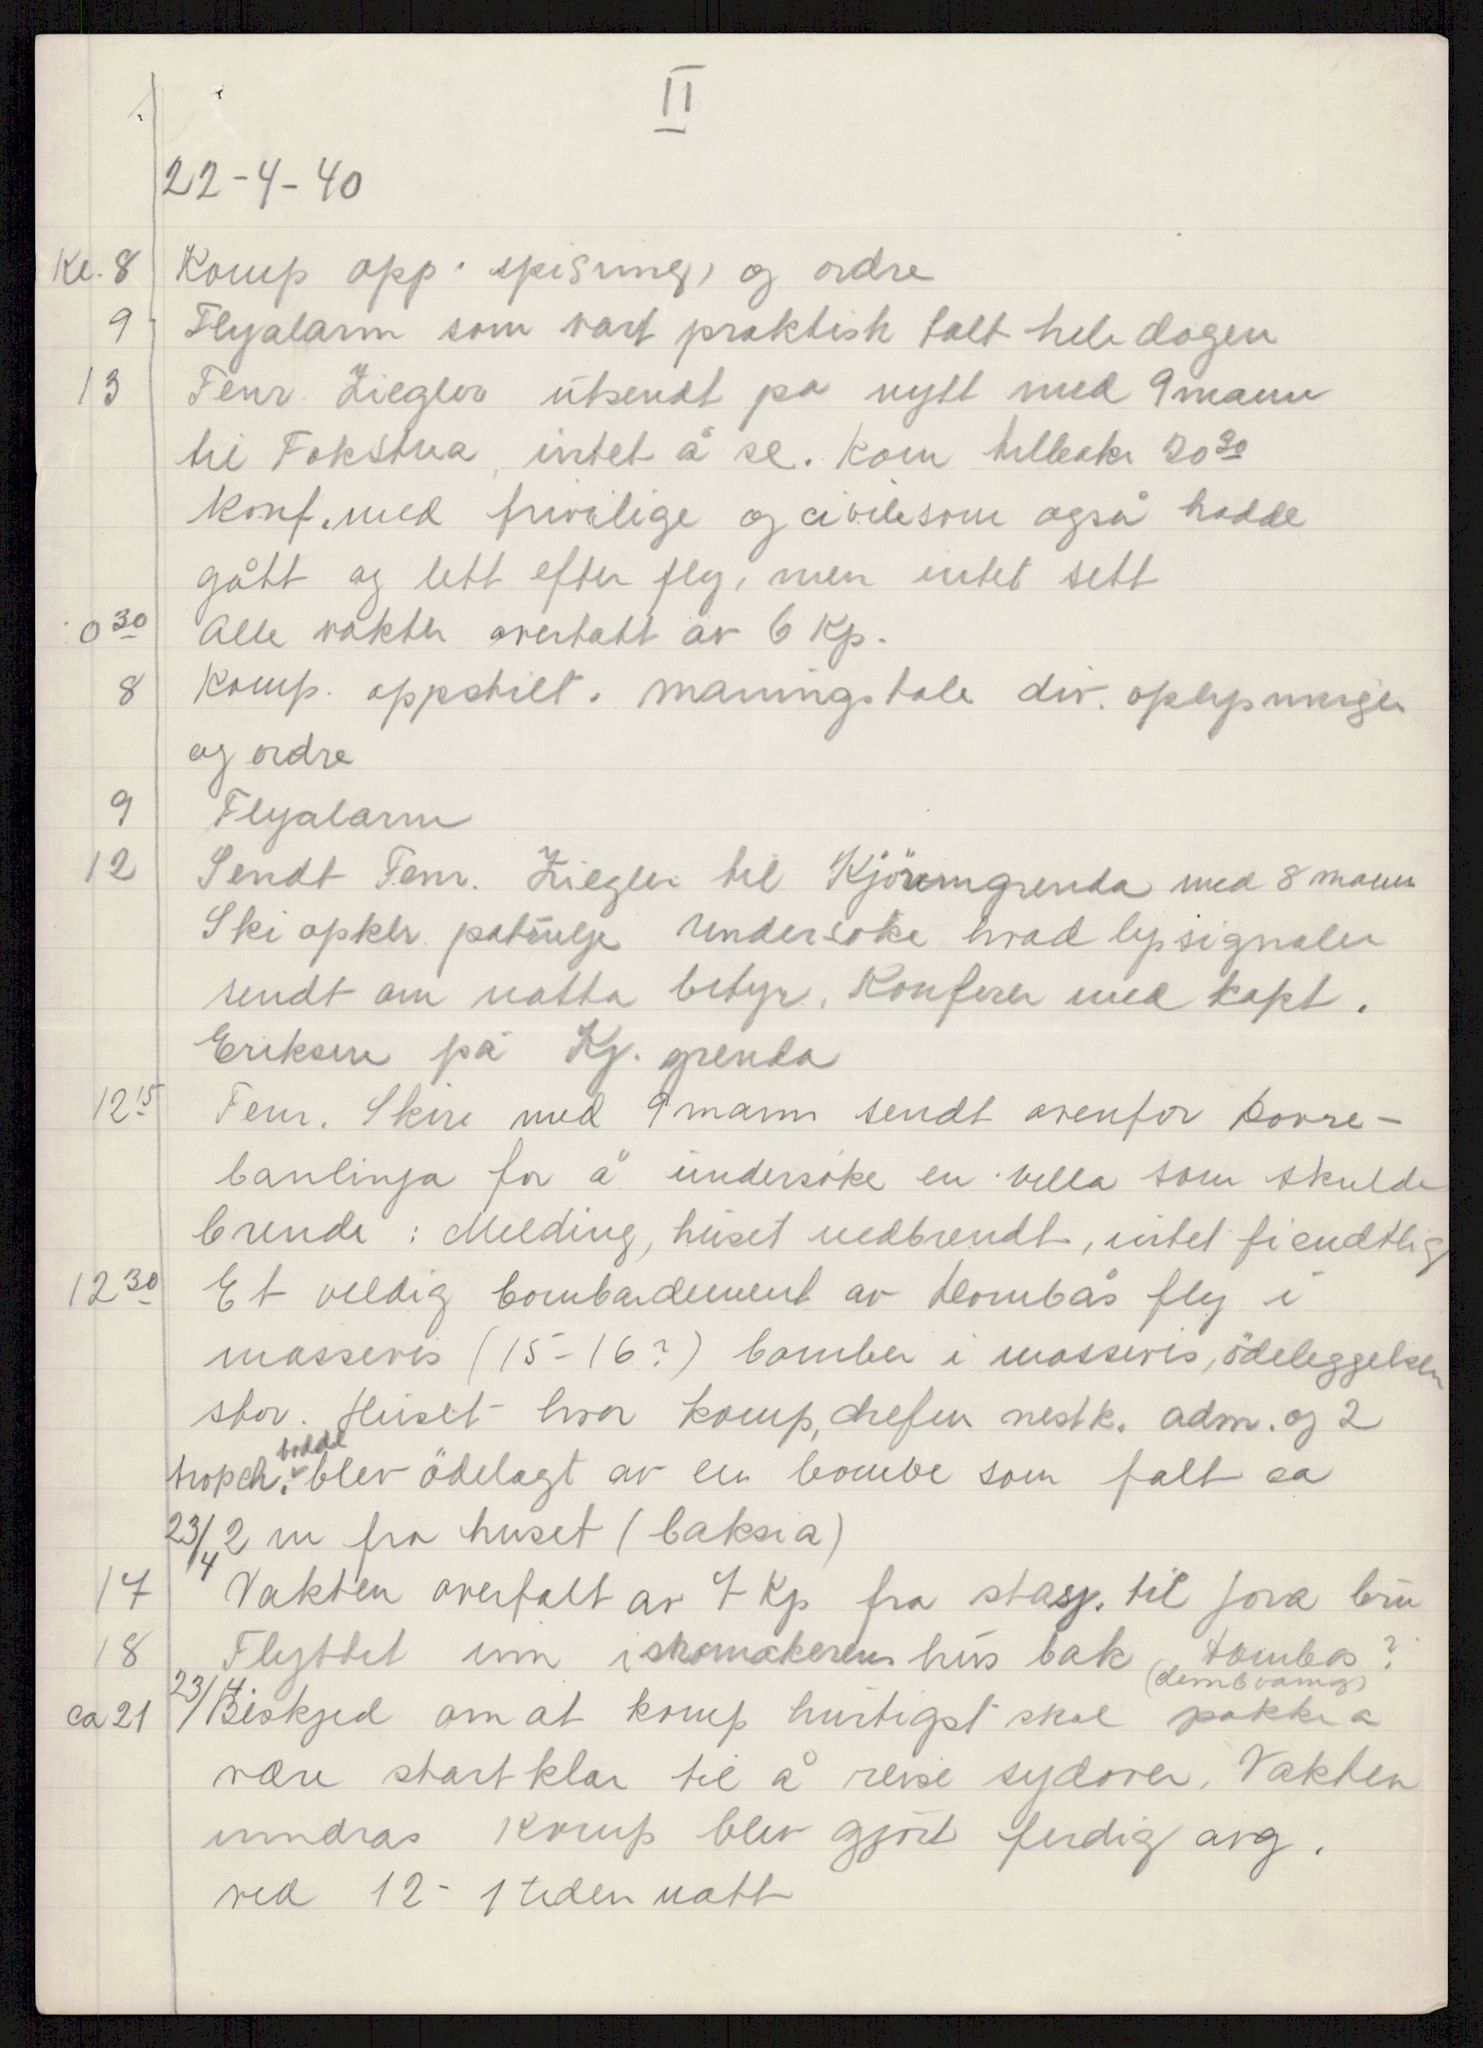 II
22-4-40
Kl. 8 Komp opp. spisning, og ordre
9 Flyalarm som vart praktisk talt hele dagen
13 Fenr. Ziegler utsendt på nytt med 9 mann
til Fokstua, intet å se. Kom tilbake 20 30
Konf. med frivilige og civile som også hadde
gått og lett efter fly, men intet sett
0 30 Alle vakter overtatt av 6 Kp.
8 Komp. oppstilt. Maningstale div. oplysninger
og ordre
9 Flyalarm
12 Sendt Fenr. Ziegler til Kjöremgrenda med 8 mann
Ski opklr. patrulje undersøke hvad lyssignaler
sendt om natta betyr. Konferer med kapt.
Eriksen på Kj. grenda
12 15 Fenr. Skire med 9 mann sendt ovenfor Dovre-
banlinja for å undersøke en villa som skulde
brende : Melding, huset nedbrendt, intet fiendtlig
12 30 Et veldig bombardement av Dombås fly i
massevis (15-16?) bomber i massevis, ödeleggelsen
stor. Huset hvor komp, chefen nestk. adm. og 2
tropch. bodde blev ödelagt av en bombe som falt ca
23/4 2 m fra huset (baksia)
17 Vakten overtatt av 7 Kp fra stasj. til Jora bru
18 Flyttet inn i skomakerens hus bak Dombas?
(dombvang)
ca 21 23/4 Beskjed om at komp hurtigst skal pakke a
være startklar til å reise sydover. Vakten
inndras Komp blev gjort ferdig avg.
ved 12-1 tiden natt